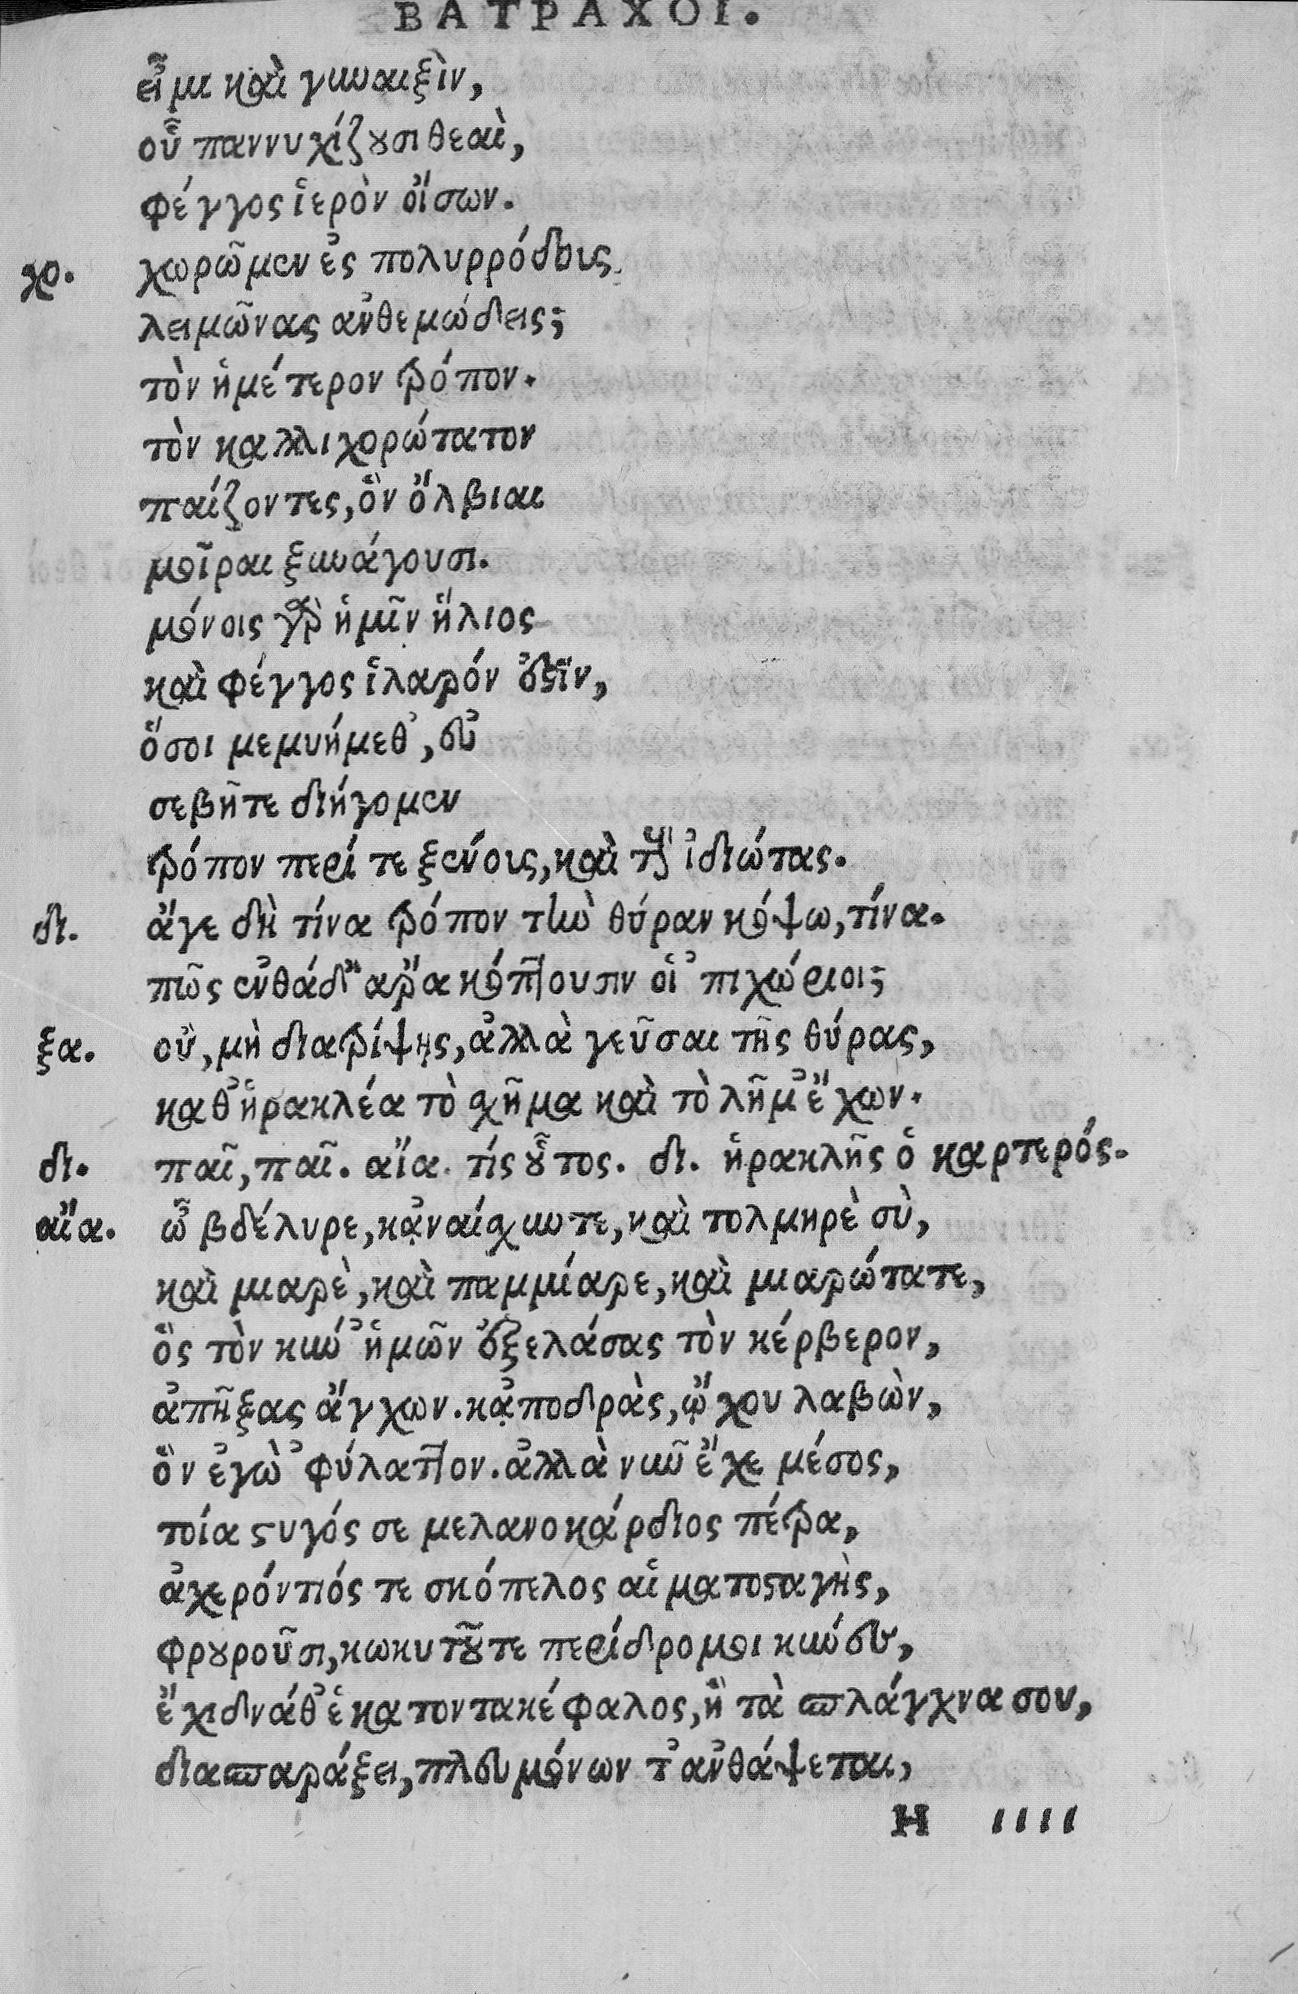 ΒΑΤΡΑΧΟΙ.
εἶμι καὶ γυναιξὶν,
οὗ παννυχίζουσι θεαὶ,
φέγγος ἱερὸν οἴσων.
χο. χωρῶμεν ἐς πολυρρόδοις
λειμῶνας ἀνθεμώδεις;
τὸν ἡμέτερον τρόπον.
τὸν καλλιχορώτατον
παίζοντες, ὃν ὄλβιαι
μοῖραι ξυνάγουσι.
μόνοις γὰρ ἡμῖν ἥλιος
καὶ φέγγος ἱλαρόν ἐστϊν,
ὅσοι μεμυήμεθ᾽, εὐ
σεβῆτε διήγομεν
τρόπον περί τε ξένοις, καὶ τοὺς ἰδιώτας.
δι. ἄγε δὴ τίνα τρόπον τὴν θύραν κόψω, τίνα.
πῶς ἐνθάδ᾽ ἄρα κόπτουσιν οἱ ᾽πιχώριοι;
ξα. οὐ, μὴ διατρίψῃς, ἀλλὰ γεῦσαι τῆς θύρας,
καθ᾽ ἡρακλέα τὸ σχῆμα καὶ τὸ λῆμ᾽ ἔχων.
δι. παῖ, παῖ. αἴα. τίς οὗτος. δι. ἡρακλῆς ὁ καρτερός.
αἴα. ὦ βδέλυρε, κᾀναίσχυντε, καὶ τολμηρὲ σὺ,
καὶ μιαρὲ, καὶ παμμίαρε, καὶ μιαρώτατε,
ὃς τὸν κύν᾽ ἡμῶν ἐξελάσας τὸν κέρβερον,
ἀπῆξας ἄγχων. κᾀποδρὰς, ᾤχου λαβὼν,
ὃν ἐγὼ ᾽φύλαττον. ἀλλὰ νῦν ἔχε μέσος,
τοία στυγός σε μελανοκάρδιος πέτρα,
ἀχερόντιός τε σκόπελος αἱματοσταγὴς,
φρουροῦσι, κωκυτοῦ τε περίδρομοι κύνες,
ἔχιδνά θ᾽ ἑκατοντακέφαλος, ἣ τὰ σπλάγχνα σου,
διασπαράξει, πλευμόνων τ᾽ ἀνθάψεται,
Η ιιιι